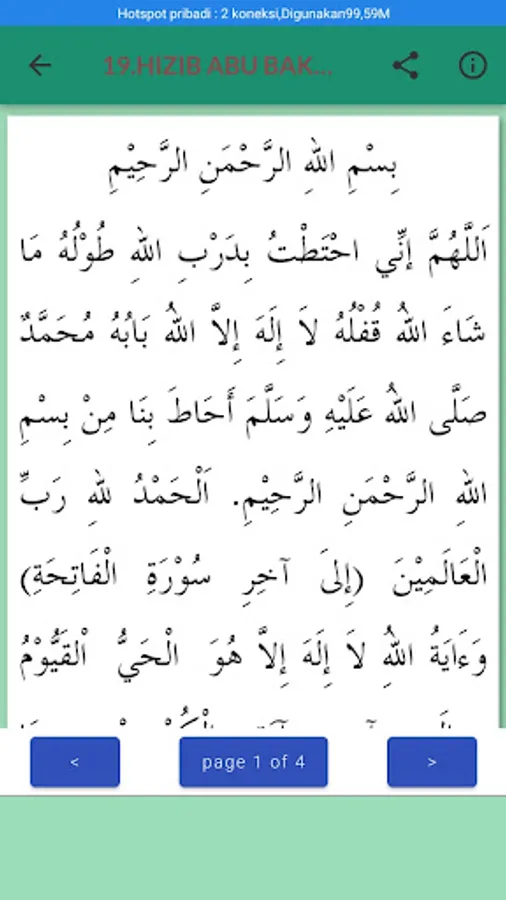 Hotspot pribadi : 2 koneksi,Digunakan99,59M
19.HIZIB ABU BAK...
بِسْمِ اللهِ الرَّحْمَنِ الرَّحِيْمِ
اَللَّهُمَّ إِنِّي احْتَطْتُ بِدَرْبِ اللهِ طُوْلُهُ مَا
شَاءَ اللهُ قُفْلُهُ لاَ إِلَهَ إِلاَّ اللهُ بَابُهُ مُحَمَّدٌ
صَلَّى اللهُ عَلَيْهِ وَسَلَّمَ أَحَاطَ بِنَا مِنْ بِسْمِ
اللهِ الرَّحْمَنِ الرَّحِيْمِ. اَلْحَمْدُ لِلهِ رَبِّ
الْعَالَمِيْنَ (إِلىَ آخِرِ سُوْرَةِ الْفَاتِحَةِ)
وَءَايَةُ اللهُ لاَ إِلَهَ إِلاَّ هُوَ الْحَيُّ اْلقَيُّوْمُ
< page 1 of 4 >